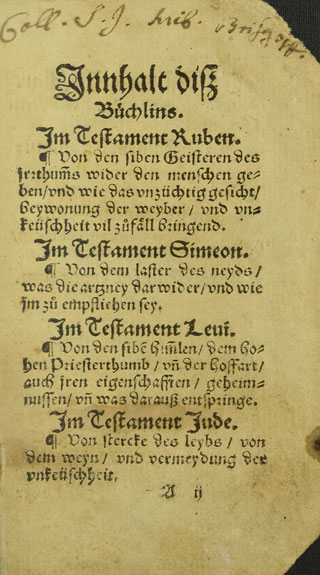 Coll. S. J. Frib. Brisg.
Innhalt diß
Büchlins.
Im Testament Ruben.
¶ Von den siben Geisteren des
jrrthum̃s wider den menschen ge-
ben/vnd wie das vnzüchtig gesicht/
beywonung der weyber/ vnd vn-
keüschheit vil züfäll bringend.
Im Testament Simeon.
¶ Von dem laster des neyds/
was die artzney darwider/vnd wie
jm zů empfliehen sey.
Im Testament Leui.
¶ Von den sibẽ him̃len/ dem ho-
hen Priesterthumb/ vñ der hoffart/
auch jren eigenschafften/ geheim-
nussen/ vñ was darauß entspringe.
Im Testament Jude.
¶ Von stercke des leybs/ von
dem weyn/ vnd vermeydung der
vnkeüschheit.
A ij